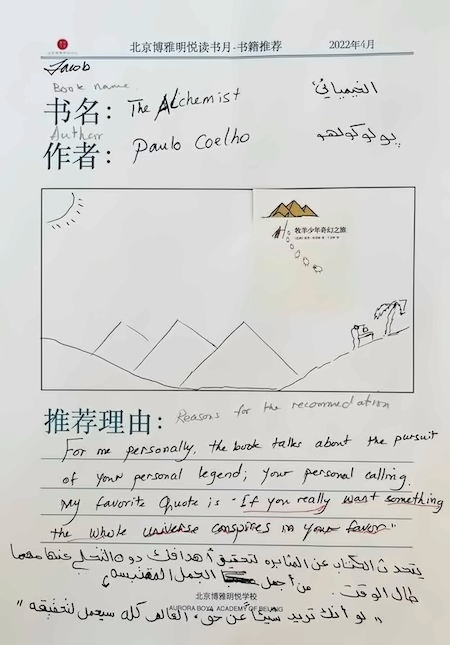 北京博雅明悦读书月-书籍推荐 2022年4月
Jacob
Book name
书名: The Alchemist الخيميائي
Author
作者: Paulo Coelho باولو كولهو
牧羊少年奇幻之旅
推荐理由: Reasons for the recommedation
For me personally, the book talks about the pursuit
of your personal legend; your personal calling.
My favorite Quote is "If you really want something
the whole universe conspires in your favor"
يتحدث الكتاب عن المثابره لتحقيق أهدافك دون التخلي عنها مهما
طال الوقت. من أجمل الجمل المقتبسه
北京博雅明悦学校
AURORA BOYA ACADEMY OF BEIJING
"لو أنك تريد شيئاً عن حق، العالم كله سيعمل لتحقيقه"